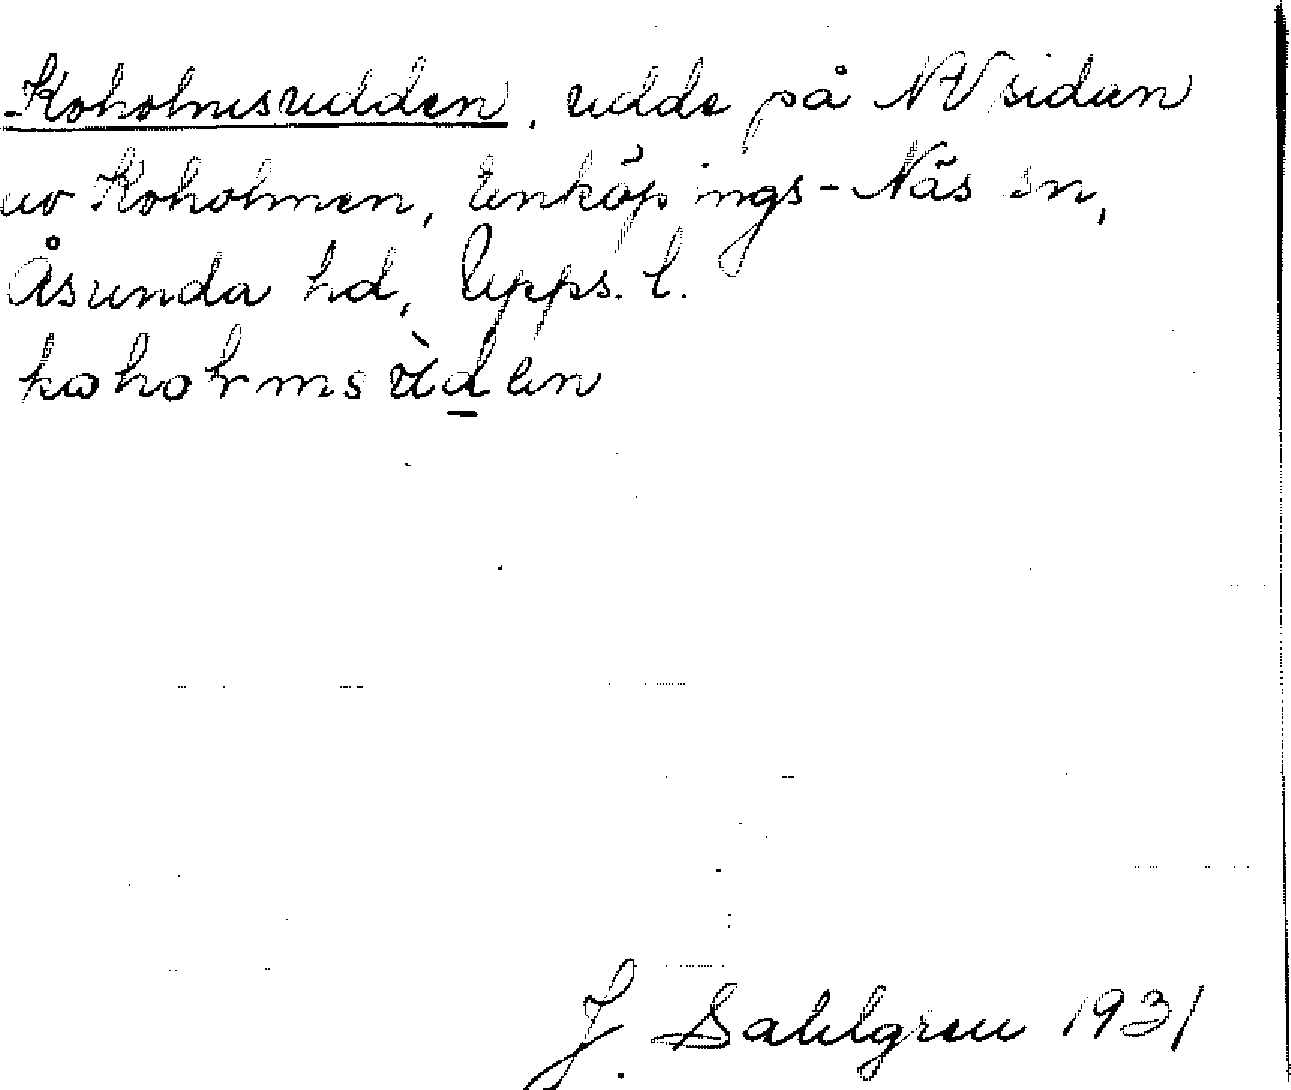 Koholmsudden, udde på NV sidan
av Koholmen, Enköpings-Näs sn,
Åsunda hd, Upps. l.
kohohmsùden
J. Sahlgren 1931